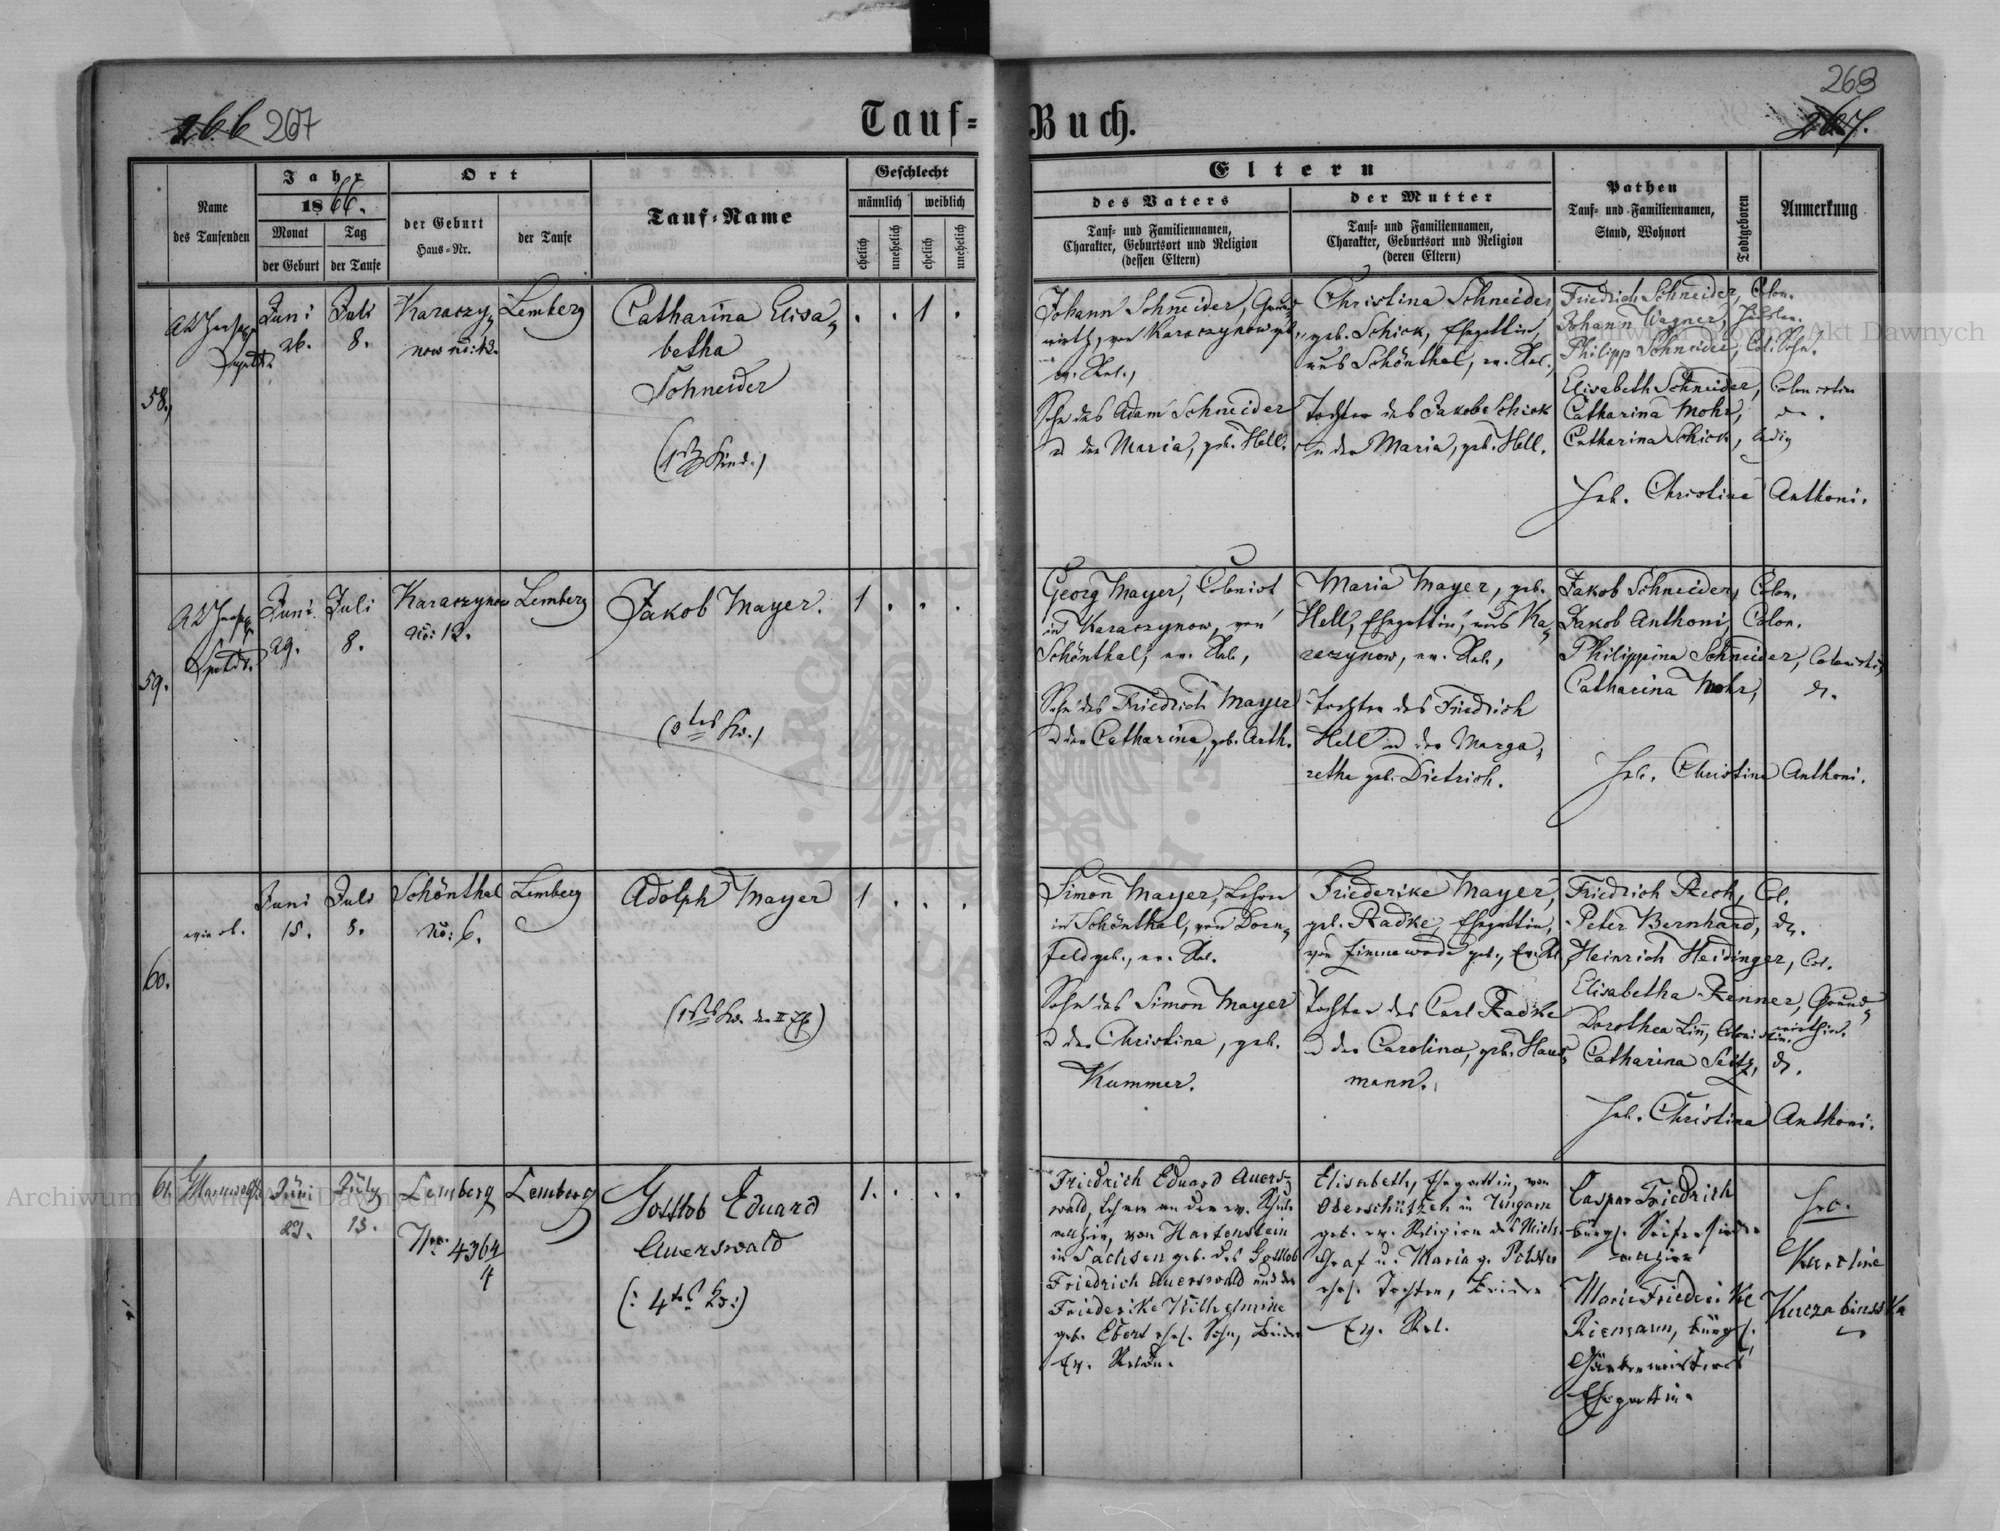 266 267
Tauf=Buch.
268
267.
Name
des Taufenden
Jahr
1866.
Monat
der Geburt
Tag
der Taufe
Ort
der Geburt
Haus=Nr.
der Taufe
Tauf=Name
Geschlecht
männlich
weiblich
ehelich
unehelich
ehelich
unehelich
Eltern
des Vaters
Tauf= und Familiennamen,
Charakter, Geburtsort und Religion
(dessen Eltern)
der Mutter
Tauf= und Familiennamen,
Charakter, Geburtsort und Religion
(deren Eltern)
Pathen
Tauf= und Familiennamen,
Stand, Wohnort
Todtgeboren
Anmerkung
58.
Juni
26.
Juli
8.
Karaczy=
now No: 13.
Lemberg
Catharina Elisa=
betha
Schneider
(1stes Kind.)
1
Johann Schneider, Grund=
wirth, von Karaczynow geb.,
ev. Rel.,
Sohn des Adam Schneider
u der Maria, geb. Hell.
Christina Schneider,
geb. Schick, Ehegattin,
aus Schönthal, ev. Rel.,
Tochter des Jakob Schick
u der Maria, geb. Hell.
Friedrich Schneider, Colon.
Johann Wagner,
Philipp Schneider, Col. Sohn.
Elisabeth Schneider, Colonistin
Catharina Mohr, do.
Catharina Schick, ledig
Heb. Christina Anthoni.
59.
Juni
29.
Juli
8.
Karaczynow
No: 12.
Lemberg
Jakob Mayer.
(3tes Kd.)
1
Georg Mayer, Colonist
in Karaczynow, von
Schönthal, ev. Rel.,
Sohn des Friedrich Mayer
u der Catharina, geb. Arth.
Maria Mayer, geb.
Hell, Ehegattin, aus Ka=
raczynow, ev. Rel.,
Tochter des Friedrich
Hell u der Marga=
retha geb. Dietrich.
Jakob Schneider, Colon.
Jakob Anthoni, Colon.
Philippina Schneider, Colonistin
Catharina Mohr, do.
Heb. Christina Anthoni.
60.
wie ob.
Juni
15.
Juli
8.
Schönthal
No: 6.
Lemberg
Adolph Mayer
(1stes Kd. der II Ehe)
1
Simon Mayer, Lehrer
in Schönthal, von Dorn=
feld geb., ev. Rel.
Sohn des Simon Mayer
u der Christina, geb.
Kummer.
Friederike Mayer,
geb. Radke, Ehegattin,
von geb., Ev. Rel.
Tochter des Carl Radke
u der Carolina, geb. Haus=
mann.
Friedrich Rech, Col.
Peter Bernhard, do.
Heinrich Heidinger, Col.
Elisabetha Renner, Grund=
wirthin.
Dorothea Linn, Colonistin.
Catharina Seitz, do.
Heb. Christina Anthoni.
61.
Juni
23.
July
15.
Lemberg
Nro. 436 4/4
Lemberg
Gottlob Eduard
Auerswald
(: 4tes Kd:)
1.
Friedrich Eduard Auers=
wald, Lehrer an der ev. Schule
von Hartenstein
in Sachsen geb. des Gottlob
Friedrich Auerswald und der
Friederike Wilhelmine
geb. Ebert ehel. Sohn, beide
Ev. Relion.
Elisabeth, Ehegattin, von
Oberschützen in Ungarn
geb. ev. Religion des Mich.
Graf u. Maria g.
ehel. Tochter, beide
Ev. Rel.
Caspar Friedrich
bürgl. Seifensieder
Marie Friederike
Riemann, bürgl.
Ehegattin.
Heb.
Karoline
Archiwum Główne Akt Dawnych
Archiwum Główne Akt Dawnych